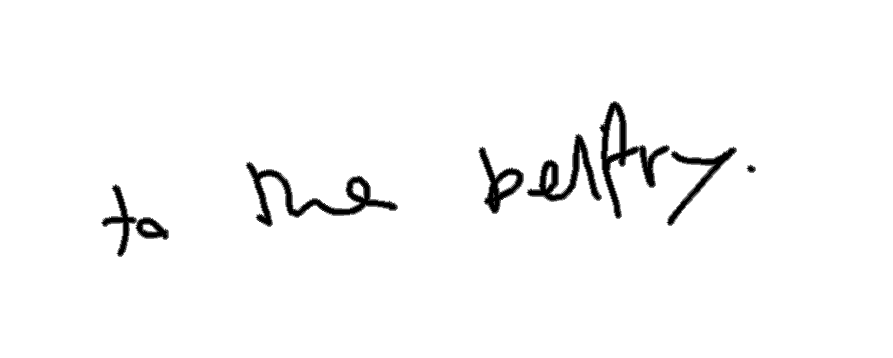 to the belfry.